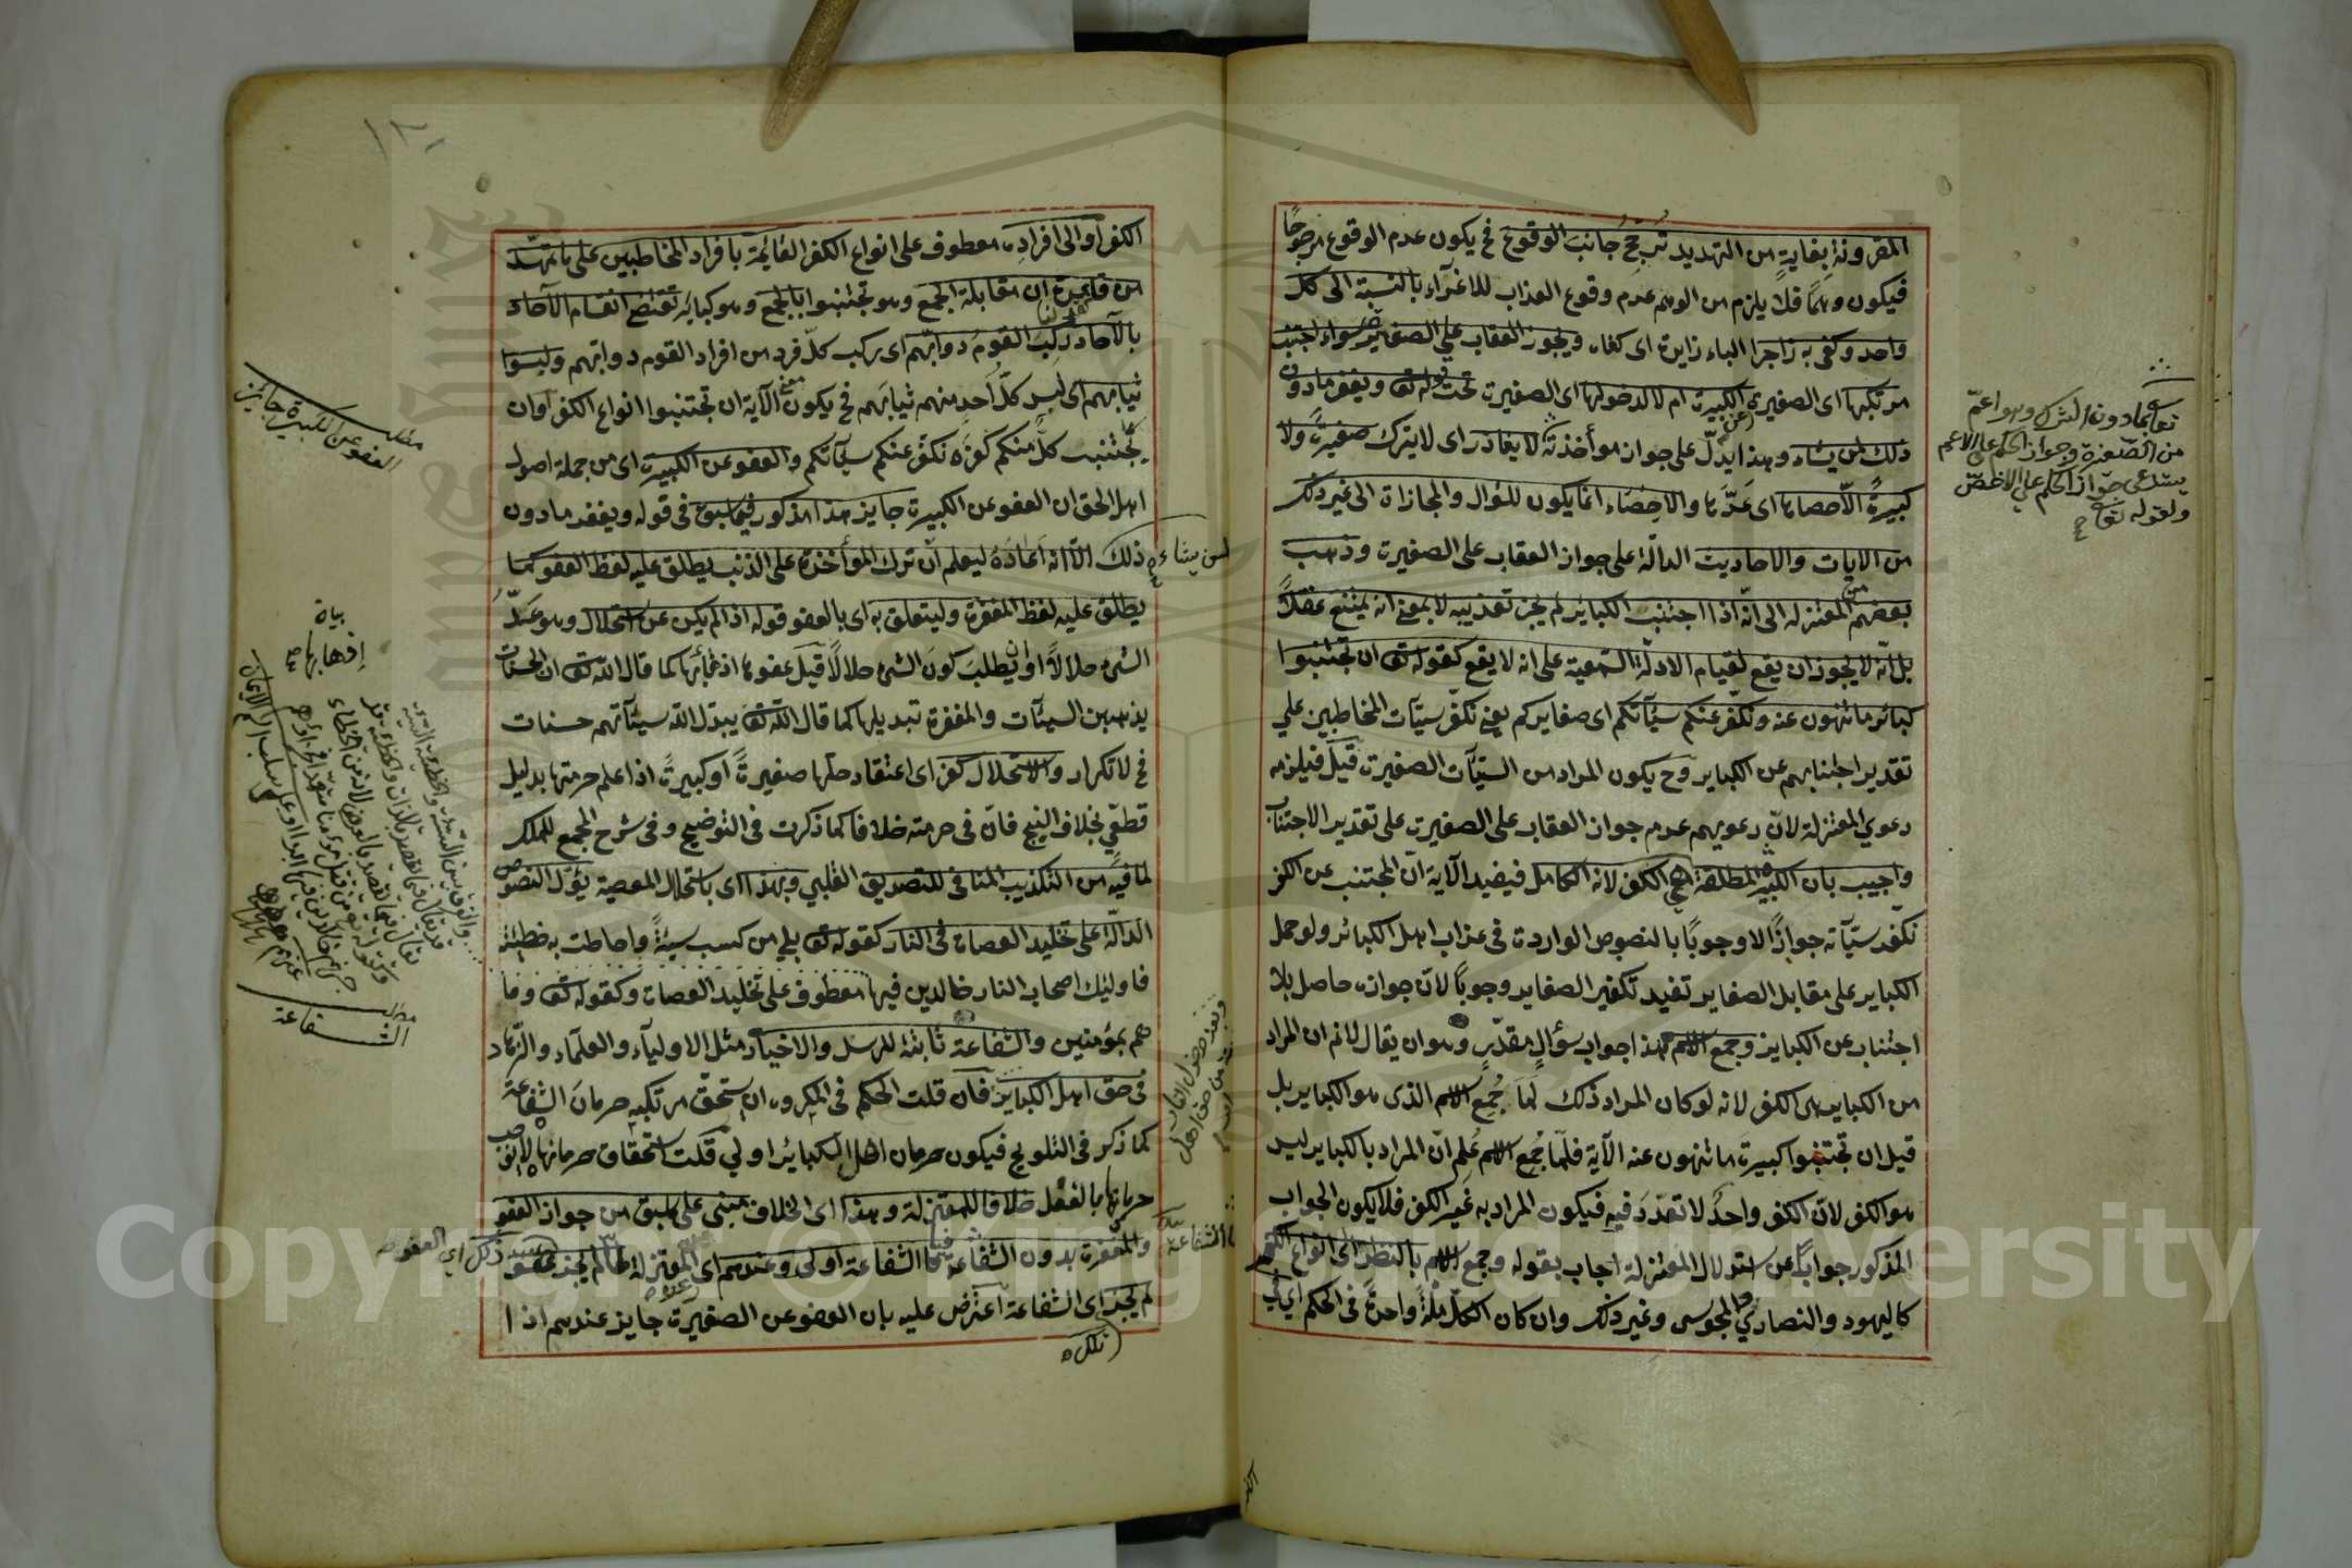 المقرونة بغاية من التهديد تُرجِّحُ جانب الوقوع فح يكون عدم الوقوع مرجوحًا
فيكون وهمًا فلا يلزم من الوهم عدم وقوع العذاب للاغراء بالنسبة الى كل
واحد وكفى به زاجرا الباء زايدة اى كفاه ويجوز العقاب على الصغيرة سواء اجتنب
مرتكبها اى الصغيرة الكبيرة ام لا لدخولها اى الصغيرة تحت قوله تع ويغفر مادون
ذلك لمن يشاء وهذا يدلّ على جواز مواخذته لا يغادر اى لا يترك صغيرة ولا
كبيرةً الّا احصاها اى عدّها والاحصاء انما يكون للسؤال والمجازاة الى غير ذلك
من الايات والاحاديث الدالّة على جواز العقاب على الصغيرة وذهب
بعضهم من المعتزلة الى انّه اذا اجتنب الكباير لم يجز تعذيبه لا بمعنى انه يمتنع عقلاً
بل انّه لا يجوز ان يقع لقيام الادلّة السّمعية على انه لا يقع كقوله تع ان تجتنبوا
كبائر ما تنهون عنه ونكفّر عنكم سيّآتكم اى صغايركم يعنى نكفّر سيّآت المخاطبين على
تقدير اجتنابهم عن الكباير وح يكون المراد من السيّآت الصغيرة قيل فيلزمه
دعوي المعتزلة لانّ دعويهم عدم جواز العقاب على الصغيرة على تقدير الاجتناب
واجيب بان الكبيرة المطلقة هى الكفر لانه الكامل فيفيد الآية انّ المجتنب عن الكفر
نكفّر سيّآته جوازًا لا وجوبًا بالنصوص الواردة فى عذاب اهل الكبائر ولو حمل
الكباير على مقابل الصغاير تفيد تكفير الصغاير وجوبًا لانّ جوازه حاصل بلا
اجتناب عن الكباير وجمع الاسم هذا جواب سؤال مقدّر وهو ان يقال لانم ان المراد
من الكباير هى الكفر لانه لو كان المراد ذلك لَمَا جُمِعَ الاسم الذى هو الكباير بل
قيل ان تجتنبوا كبيرة ما تنهون عنه الآية فلمّا جُمِع الاسم عُلم انّ المراد بالكباير ليس
هو الكفر لانّ الكفر واحدٌ لا تعدّد فيه فيكون المراد به غير الكفر فلا يكون الجواب
المذكور جوابًا عن استدلال المعتزلة اجاب بقوله وجمع الاسم بالنظر الى انواع الكفر
كاليهود والنصارى والمجوسى وغير ذلك وان كان الكلّ ملّةً واحدةً فى الحكم اى فى
تع مادون الشرك وهو اعمّ
من الصّغيرة وجواز الحكم على الاعم
يستدعى جواز الحكم على الاخصّ
ولقوله تع
الكفر او الى افراده معطوف على انواع الكفر القايمة بافراد المخاطبين على ما تمهّد
من قاعدة ان مقابلة الجمع وهو تجتنبوا بالجمع وهو كبائر تقتضى انقسام الآحاد
بالآحاد ركب القوم دوابّهم اى ركب كلّ فرد من افراد القوم دوابهم ولبسوا
ثيابهم اى لبس كلّ اَحدٍ منهم ثيابهم فح يكون معنى الآية ان تجتنبوا انواع الكفر او ان
يجتنب كلّ منكم كفره نكفّر عنكم سيّآتكم والعفو عن الكبيرة اى من جملة اصول
اهل الحق ان العفو عن الكبيرة جايز هذا مذكور فيما سبق فى قوله ويغفر مادون
ذلك لمن يشاء الّا انه اَعَادَهُ ليعلم انّ ترك المؤاخذة على الذنب يطلق عليه لفظ العفو كما
يطلق عليه لفظ المغفرة وليتعلق به اى بالعفو قوله اذا لم يكن عن استحلال وهو عدّ
الشئ حلالاً او ان يطلب كون الشئ حلالاً قيل عفوها اذهابها كما قال الله تع ان الحسنات
يذهبن السيئات والمغفرة تبديلها كما قال الله تع يبدّل الله سيئآتهم حسنات
فح لا تكرار والاستحلال كفر اى اعتقاد حلّها صغيرةً او كبيرةً اذا علم حرمتها بدليل
قطعّي بخلاف البنج فانّ فى حرمته خلافا كما ذكرت فى التوضيح وفى شرح المجمع للملك
لما فيه من التكذيب المنافى للتصديق القلبي وبهذا اى باستحلال المعصية يؤوّل النصوص
الدالّة على تخليد العصاة فى النار كقوله تع بلى من كسب سيئةً واحاطت به خطيئته
فاولئك اصحاب النار خالدين فيها معطوف على تخليد العصاة وكقوله تع وما
هم بمؤمنين والشفاعة ثابتة للرسل والاخيار مثل الاولياء والعلماء والزهاد
فى حق اهل الكباير فان قلت الحكم فى المكروه ان يستحقّ مرتكبه حرمان الشفاعة
كما ذكر فى التلويح فيكون حرمان اهل الكبائر اولى قلت استحقاق حرمانها لا يوجب
حرمانها بالفعل خلافا للمعتزلة وهذا اى الخلاف مبنى على ما سبق من جواز العفو
والمغفرة بدون الشفاعة فبالشفاعة اولى وعندهم اى المعتزلة لما لم يجز عندهم ذلك اى العفو
لم يجز اى الشفاعة اعترض عليه بان العفو عن الصغيرة جايز عندهم اذا
مطلب
العفو عن الكبيرة جايز
بيان
اذهابها
مطلب
الشفاعة